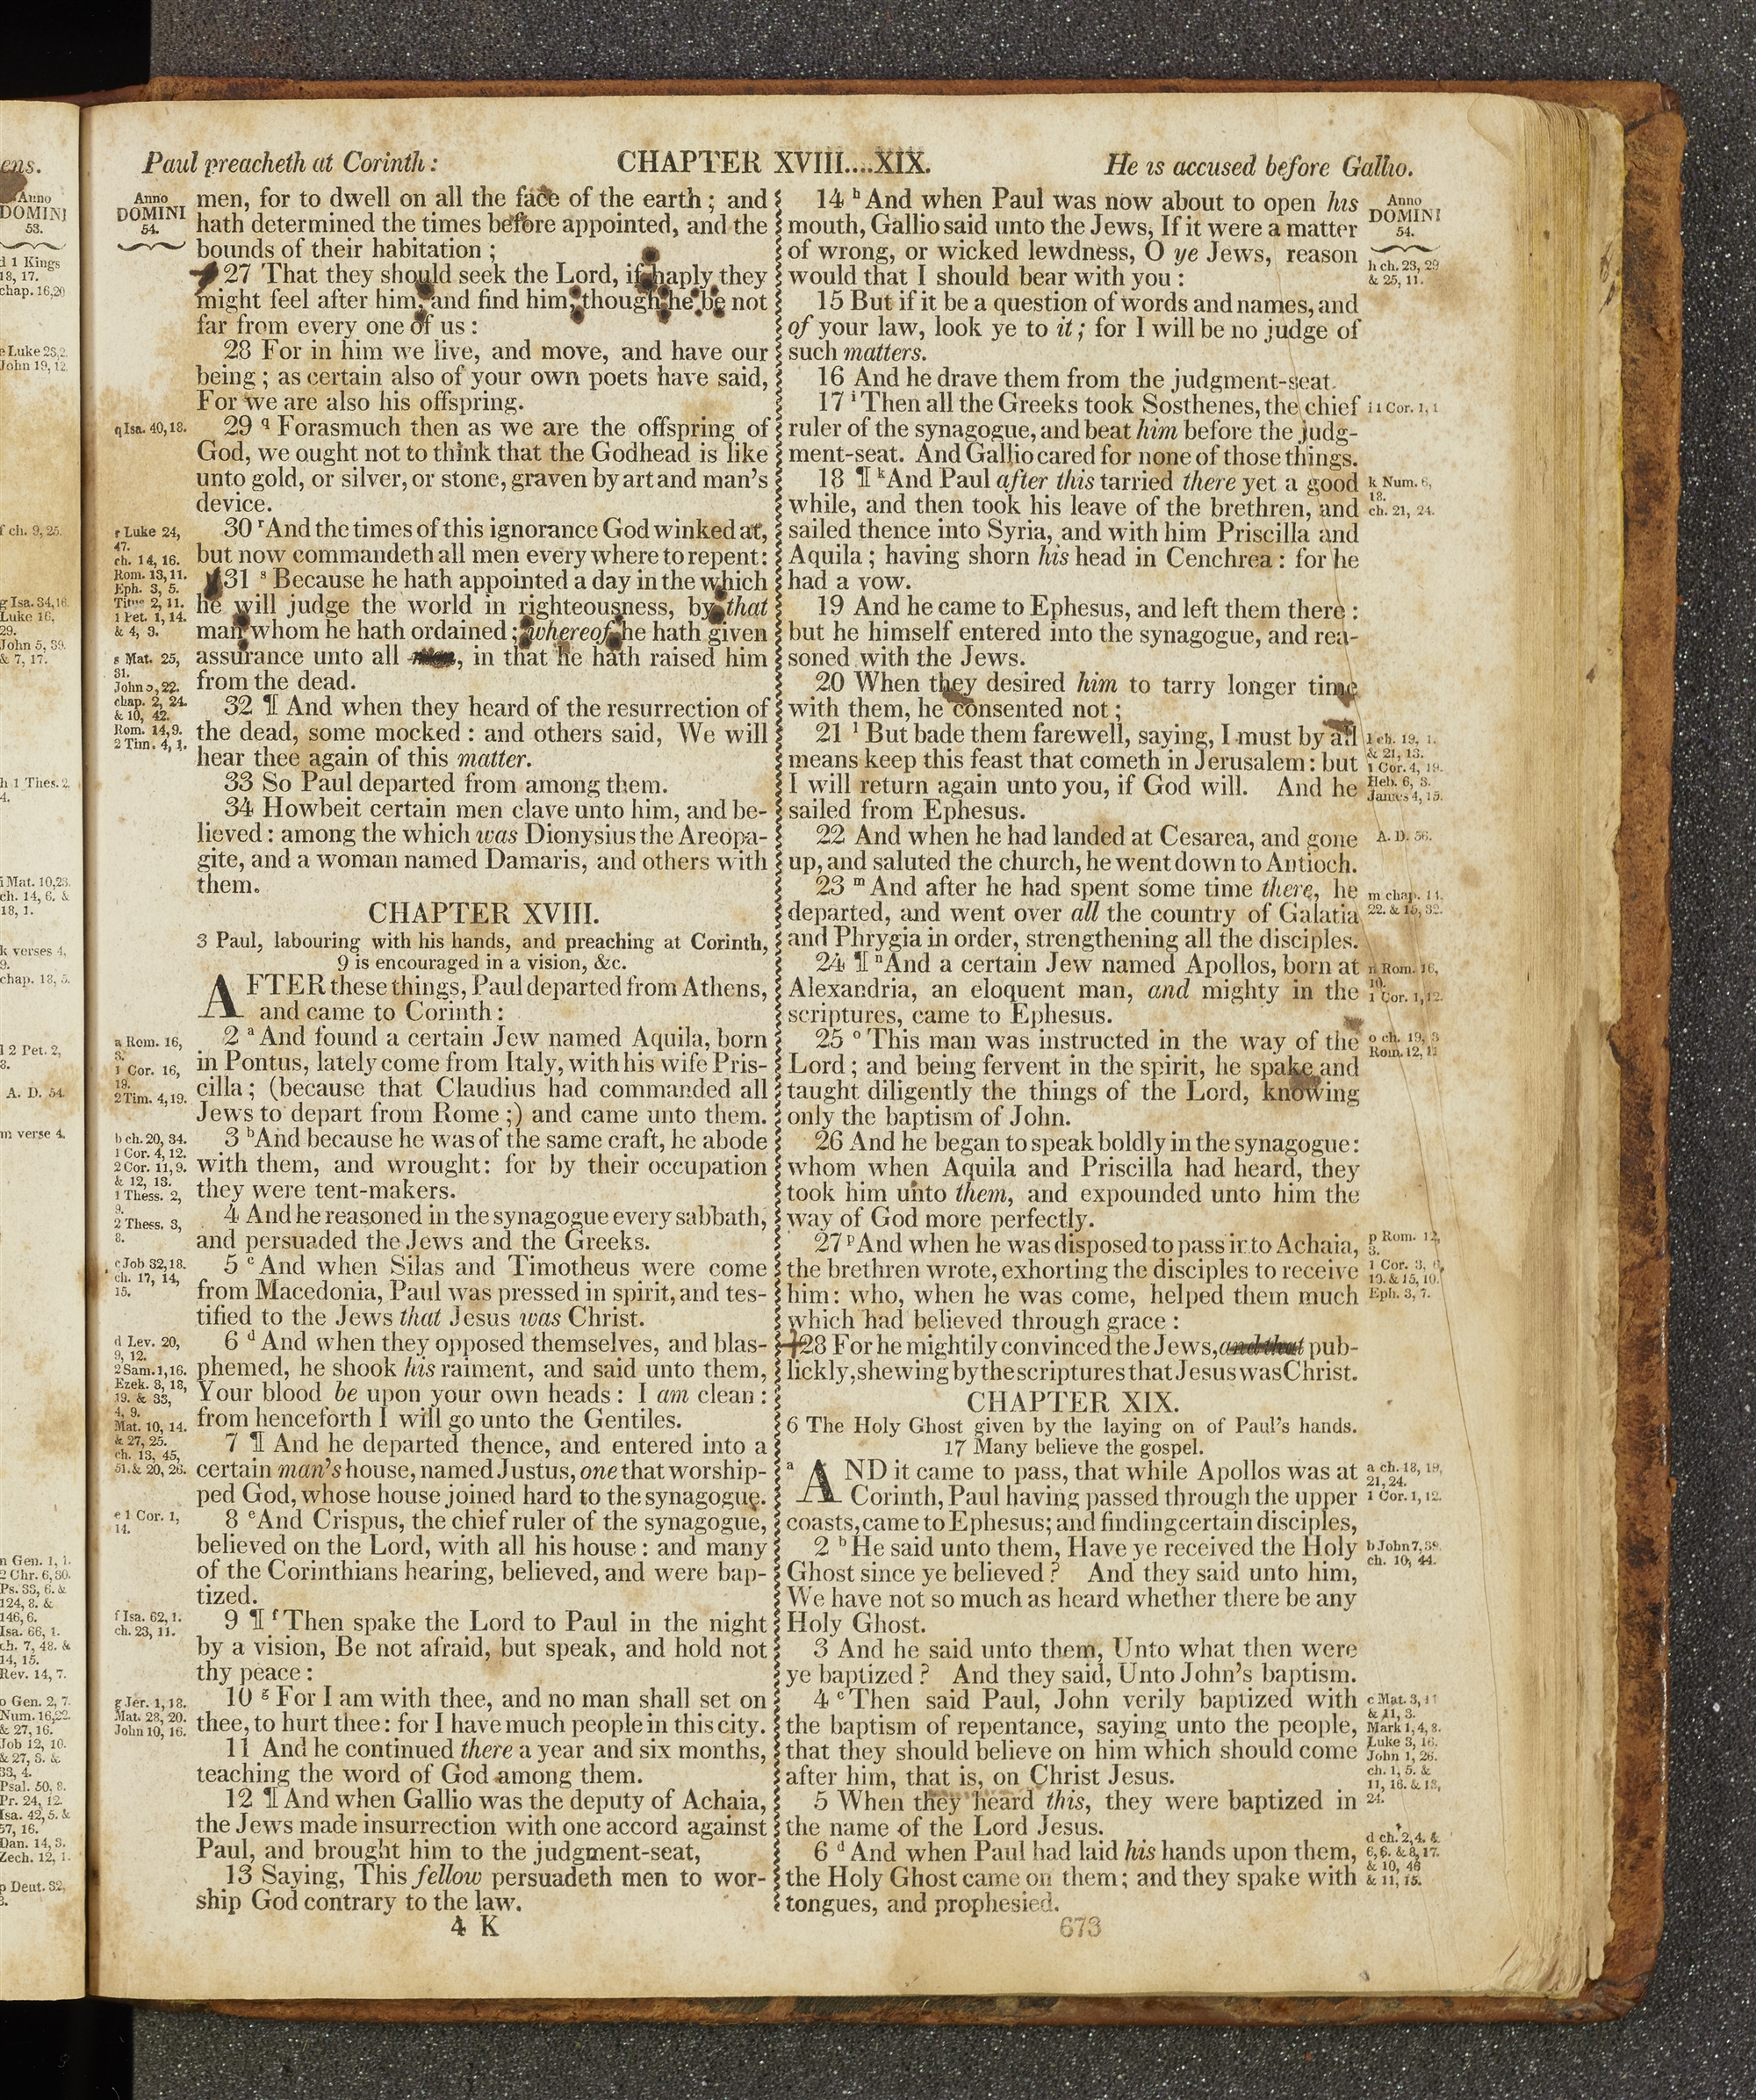 Paul preacheth at Corinth: CHAPTER XVIII....XIX. He is accused before Gallio.
Anno
DOMINI
54.
men, for to dwell on all the face of the earth; and
hath determined the times before appointed, and the
bounds of their habitation;
27 That they should seek the Lord, if haply they
might feel after him, and find him, though he be not
far from every one of us:
28 For in him we live, and move, and have our
being; as certain also of your own poets have said,
For we are also his offspring.
q Isa. 40,18.
29 q Forasmuch then as we are the offspring of
God, we ought not to think that the Godhead is like
unto gold, or silver, or stone, graven by art and man's
device.
r Luke 24,
47.
ch. 14, 16.
Rom. 13,11.
Eph. 3, 5.
Titus 2, 11.
1 Pet. 1, 14.
& 4, 3.
30 r And the times of this ignorance God winked at,
but now commandeth all men every where to repent:
31 s Because he hath appointed a day in the which
he will judge the world in righteousness, by that
man whom he hath ordained; whereof he hath given
assurance unto all men, in that he hath raised him
from the dead.
s Mat. 25,
31.
John 5, 22.
chap. 2, 24.
& 10, 42.
Rom. 14,9.
2 Tim. 4, 1.
32 ¶ And when they heard of the resurrection of
the dead, some mocked: and others said, We will
hear thee again of this matter.
33 So Paul departed from among them.
34 Howbeit certain men clave unto him, and be-
lieved: among the which was Dionysius the Areopa-
gite, and a woman named Damaris, and others with
them.
CHAPTER XVIII.
3 Paul, labouring with his hands, and preaching at Corinth,
9 is encouraged in a vision, &c.
AFTER these things, Paul departed from Athens,
and came to Corinth:
a Rom. 16,
3.
1 Cor. 16,
19.
2 Tim. 4,19.
2 a And found a certain Jew named Aquila, born
in Pontus, lately come from Italy, with his wife Pris-
cilla; (because that Claudius had commanded all
Jews to depart from Rome;) and came unto them.
b ch. 20, 34.
1 Cor. 4, 12.
2 Cor. 11,9.
& 12, 13.
1 Thess. 2,
9.
2 Thess. 3,
8.
3 b And because he was of the same craft, he abode
with them, and wrought: for by their occupation
they were tent-makers.
4 And he reasoned in the synagogue every sabbath,
and persuaded the Jews and the Greeks.
c Job 32,18.
ch. 17, 14,
15.
5 c And when Silas and Timotheus were come
from Macedonia, Paul was pressed in spirit, and tes-
tified to the Jews that Jesus was Christ.
d Lev. 20,
9, 12.
2 Sam. 1,16.
Ezek. 3, 18,
19. & 33,
4, 9.
Mat. 10, 14.
& 27, 25.
ch. 13, 45,
51. & 20, 26.
6 d And when they opposed themselves, and blas-
phemed, he shook his raiment, and said unto them,
Your blood be upon your own heads: I am clean:
from henceforth I will go unto the Gentiles.
7 ¶ And he departed thence, and entered into a
certain man's house, named Justus, one that worship-
ped God, whose house joined hard to the synagogue.
e 1 Cor. 1,
14.
8 e And Crispus, the chief ruler of the synagogue,
believed on the Lord, with all his house: and many
of the Corinthians hearing, believed, and were bap-
tized.
f Isa. 62, 1.
ch. 23, 11.
9 ¶ f Then spake the Lord to Paul in the night
by a vision, Be not afraid, but speak, and hold not
thy peace:
g Jer. 1, 18.
Mat. 28, 20.
John 10, 16.
10 g For I am with thee, and no man shall set on
thee, to hurt thee: for I have much people in this city.
11 And he continued there a year and six months,
teaching the word of God among them.
12 ¶ And when Gallio was the deputy of Achaia,
the Jews made insurrection with one accord against
Paul, and brought him to the judgment-seat,
13 Saying, This fellow persuadeth men to wor-
ship God contrary to the law.
4 K
14 h And when Paul was now about to open his
mouth, Gallio said unto the Jews, If it were a matter
of wrong, or wicked lewdness, O ye Jews, reason
would that I should bear with you:
Anno
DOMINI
54.
h ch. 23, 29
& 25, 11.
15 But if it be a question of words and names, and
of your law, look ye to it; for I will be no judge of
such matters.
16 And he drave them from the judgment-seat.
17 i Then all the Greeks took Sosthenes, the chief
ruler of the synagogue, and beat him before the judg-
ment-seat. And Gallio cared for none of those things.
i 1 Cor. 1, 1
18 ¶ k And Paul after this tarried there yet a good
while, and then took his leave of the brethren, and
sailed thence into Syria, and with him Priscilla and
Aquila; having shorn his head in Cenchrea: for he
had a vow.
k Num. 6,
18.
ch. 21, 24.
19 And he came to Ephesus, and left them there:
but he himself entered into the synagogue, and rea-
soned with the Jews.
20 When they desired him to tarry longer time
with them, he consented not;
21 l But bade them farewell, saying, I must by all
means keep this feast that cometh in Jerusalem: but
I will return again unto you, if God will. And he
sailed from Ephesus.
l ch. 19, 1.
& 21, 13.
1 Cor. 4, 19.
Heb. 6, 3.
James 4, 15.
22 And when he had landed at Cesarea, and gone
up, and saluted the church, he went down to Antioch.
A. D. 56.
23 m And after he had spent some time there, he
departed, and went over all the country of Galatia
and Phrygia in order, strengthening all the disciples.
m chap. 14,
22. & 15, 32.
24 ¶ n And a certain Jew named Apollos, born at
Alexandria, an eloquent man, and mighty in the
scriptures, came to Ephesus.
n Rom. 16,
10.
1 Cor. 1, 12.
25 o This man was instructed in the way of the
Lord; and being fervent in the spirit, he spake and
taught diligently the things of the Lord, knowing
only the baptism of John.
o ch. 19, 3
Rom. 12, 11
26 And he began to speak boldly in the synagogue:
whom when Aquila and Priscilla had heard, they
took him unto them, and expounded unto him the
way of God more perfectly.
27 p And when he was disposed to pass into Achaia,
the brethren wrote, exhorting the disciples to receive
him: who, when he was come, helped them much
which had believed through grace:
p Rom. 12,
3.
1 Cor. 3, 6,
10. & 15, 10.
Eph. 3, 7.
28 For he mightily convinced the Jews, and that pub-
lickly, shewing by the scriptures that Jesus was Christ.
CHAPTER XIX.
6 The Holy Ghost given by the laying on of Paul's hands.
17 Many believe the gospel.
a AND it came to pass, that while Apollos was at
Corinth, Paul having passed through the upper
coasts, came to Ephesus; and finding certain disciples,
a ch. 18, 19,
21, 24.
1 Cor. 1, 12.
2 b He said unto them, Have ye received the Holy
Ghost since ye believed? And they said unto him,
We have not so much as heard whether there be any
Holy Ghost.
b John 7, 39.
ch. 10, 44.
3 And he said unto them, Unto what then were
ye baptized? And they said, Unto John's baptism.
4 c Then said Paul, John verily baptized with
the baptism of repentance, saying unto the people,
that they should believe on him which should come
after him, that is, on Christ Jesus.
c Mat. 3, 11
& 11, 3.
Mark 1, 4, 8.
Luke 3, 16.
John 1, 26.
ch. 1, 5. &
11, 16. & 13,
24.
5 When they heard this, they were baptized in
the name of the Lord Jesus.
6 d And when Paul had laid his hands upon them,
the Holy Ghost came on them; and they spake with
tongues, and prophesied.
d ch. 2, 4. &
6, 6. & 8, 17.
& 10, 46
& 11, 15.
673